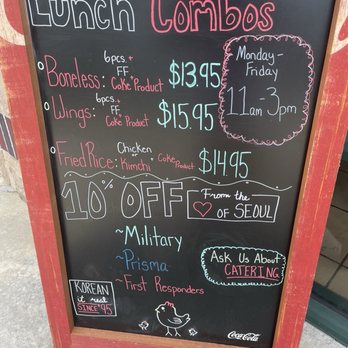 Lunch Combos
Monday -
Friday
11am - 3pm
Boneless: 6pcs + FF + Coke Product $13.95
Wings: 6pcs + FF + Coke Product $15.95
Fried Rice: Chicken or Kimchi + Coke Product $14.95
10% OFF
From the
♡ of SEOUL
~Military
~Prisma
~First Responders
Ask Us About
CATERING
KOREAN
it real
SINCE '95
Coca-Cola